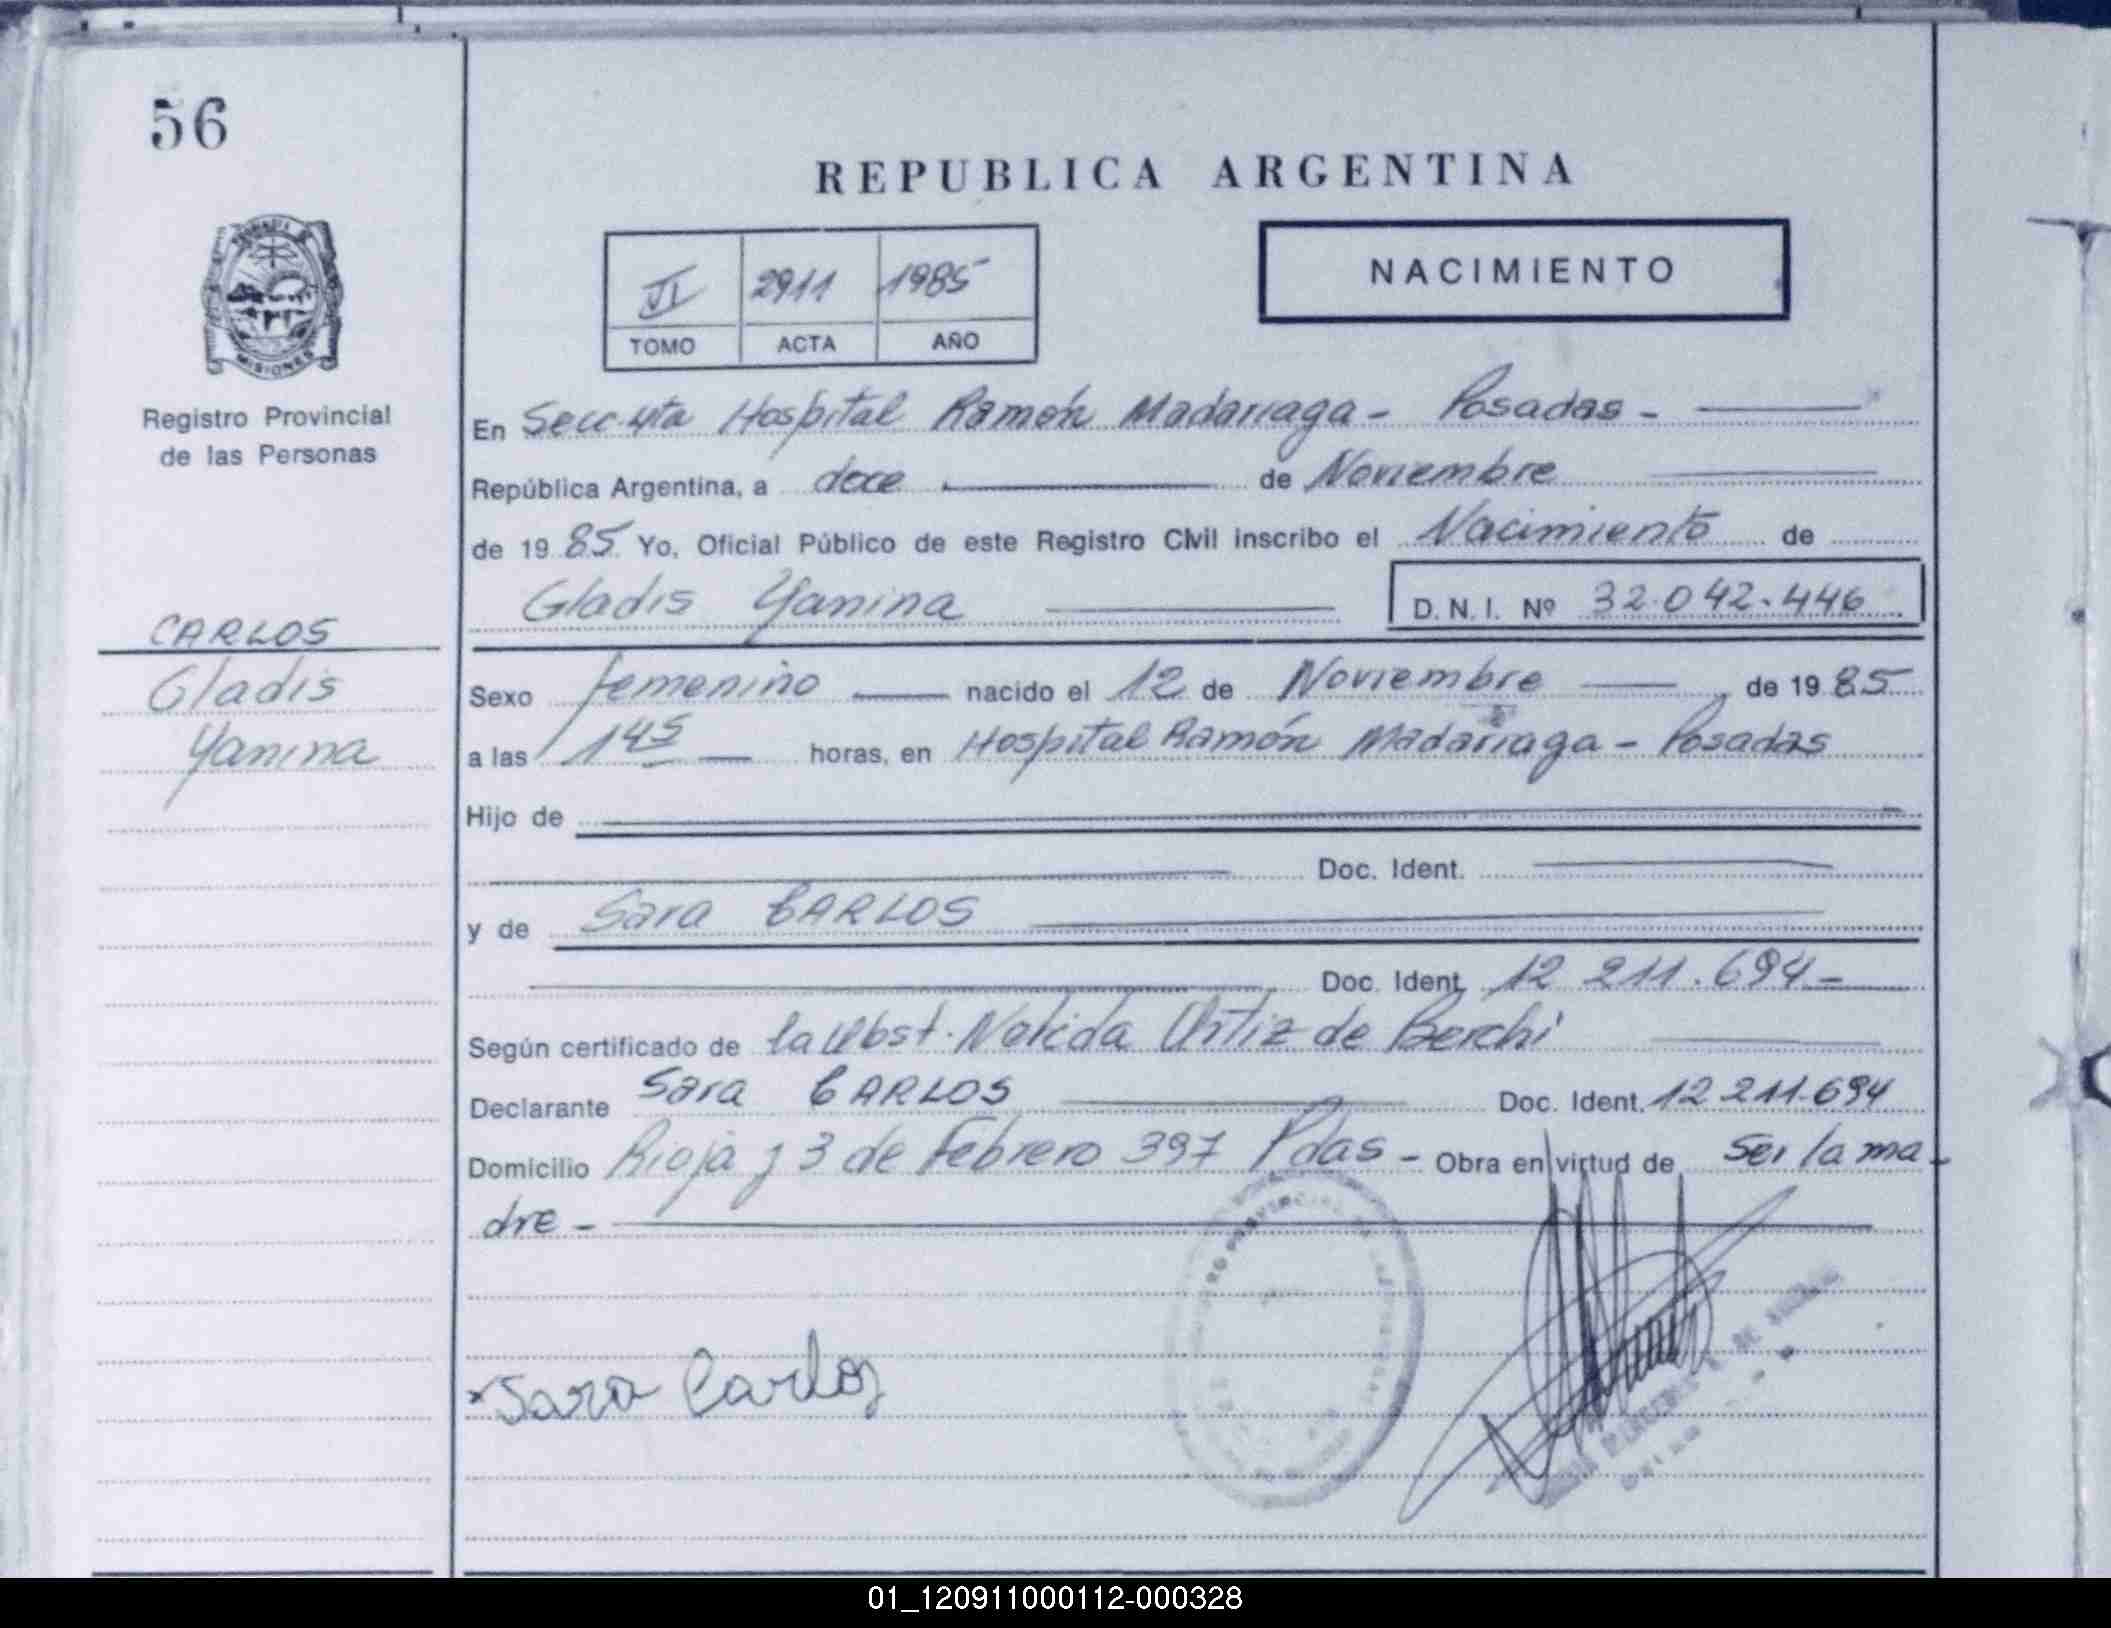 56
REPUBLICA ARGENTINA
NACIMIENTO
VI 2911 1985
TOMO ACTA AÑO
MISIONES
Registro Provincial
de las Personas
CARLOS
Gladis
Yanina
En Secc 4ta Hospital Ramón Madariaga - Posadas -
República Argentina, a doce de Noviembre
de 19 85 Yo, Oficial Público de este Registro Civil inscribo el Nacimiento de
Gladis Yanina D.N.I. Nº 32.042.446
Sexo femenino nacido el 12 de Noviembre de 19 85
a las 1 45 horas, en Hospital Ramón Madariaga - Posadas
Hijo de
Doc. Ident.
y de Sara CARLOS
Doc. Ident. 12 211.694 -
Según certificado de la Obst. Ortiz de Berchi
Declarante Sara CARLOS Doc. Ident. 12 211.694
Domicilio Rioja y 3 de Febrero 397 Pdas - Obra en virtud de Ser la ma-
dre -
Sara Carlos
01_120911000112-000328